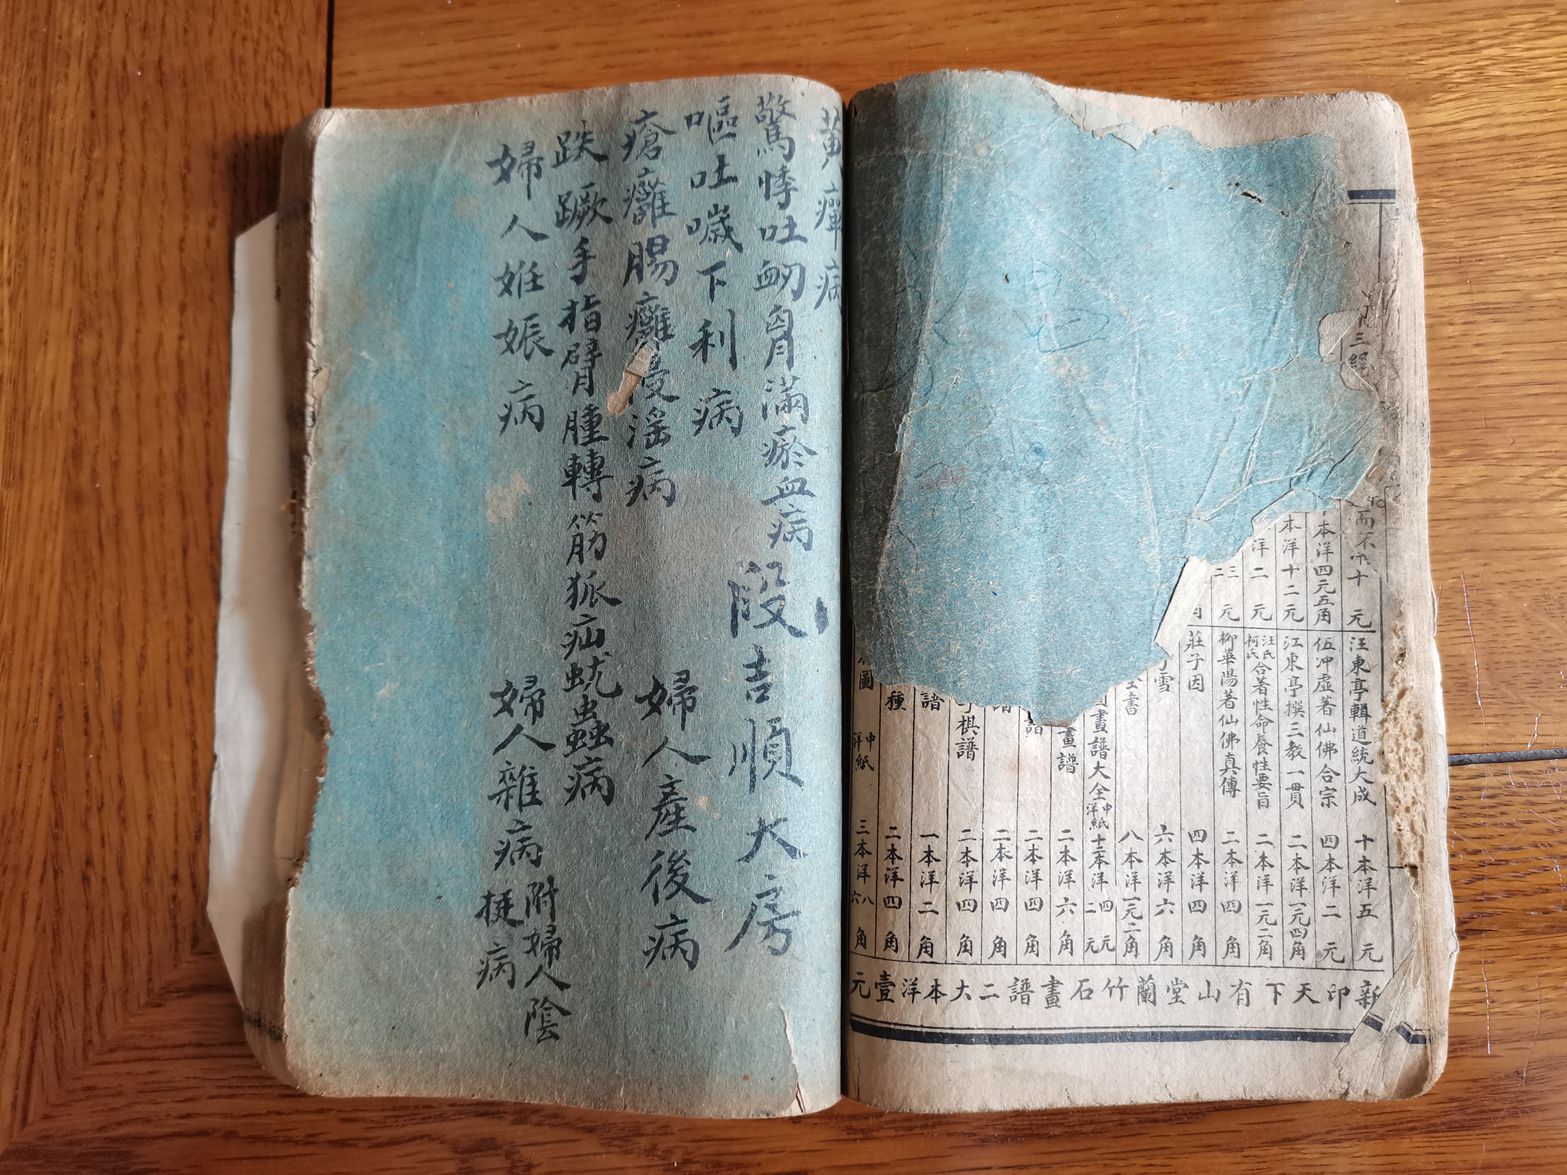 黃癉病
驚悸吐衂胷滿瘀血病
嘔吐噦下利病
瘡癰腸癰浸淫病
趺蹶手指臂腫轉筋狐疝蚘蟲病
婦人姙娠病
段吉順大房
婦人產後病
婦人雜病
附婦人陰
挺病
十三經
而不
十元
本洋四元五角
本洋十二元
洋二元
三元
汪東亭輯道統大成 十本洋五元
伍冲虛著仙佛合宗 四本洋二元
江東亭撰三教一貫 二本洋一元四角
汪氏柯氏合著性命養性要旨 二本洋一元二角
柳華陽著仙佛真傳 二本洋四角
莊子因 四本洋四角
雪 六本洋六角
書 八本洋一元二角
畫譜大全中紙洋紙 十二本洋四元二元
畫譜 二本洋六角
譜 二本洋四角
二本洋四角
棋譜 二本洋四角
譜 一本洋二角
種 二本洋四角
圖 中洋紙 三本洋八六角
新印天下有山堂蘭竹石畫譜二大本洋壹元